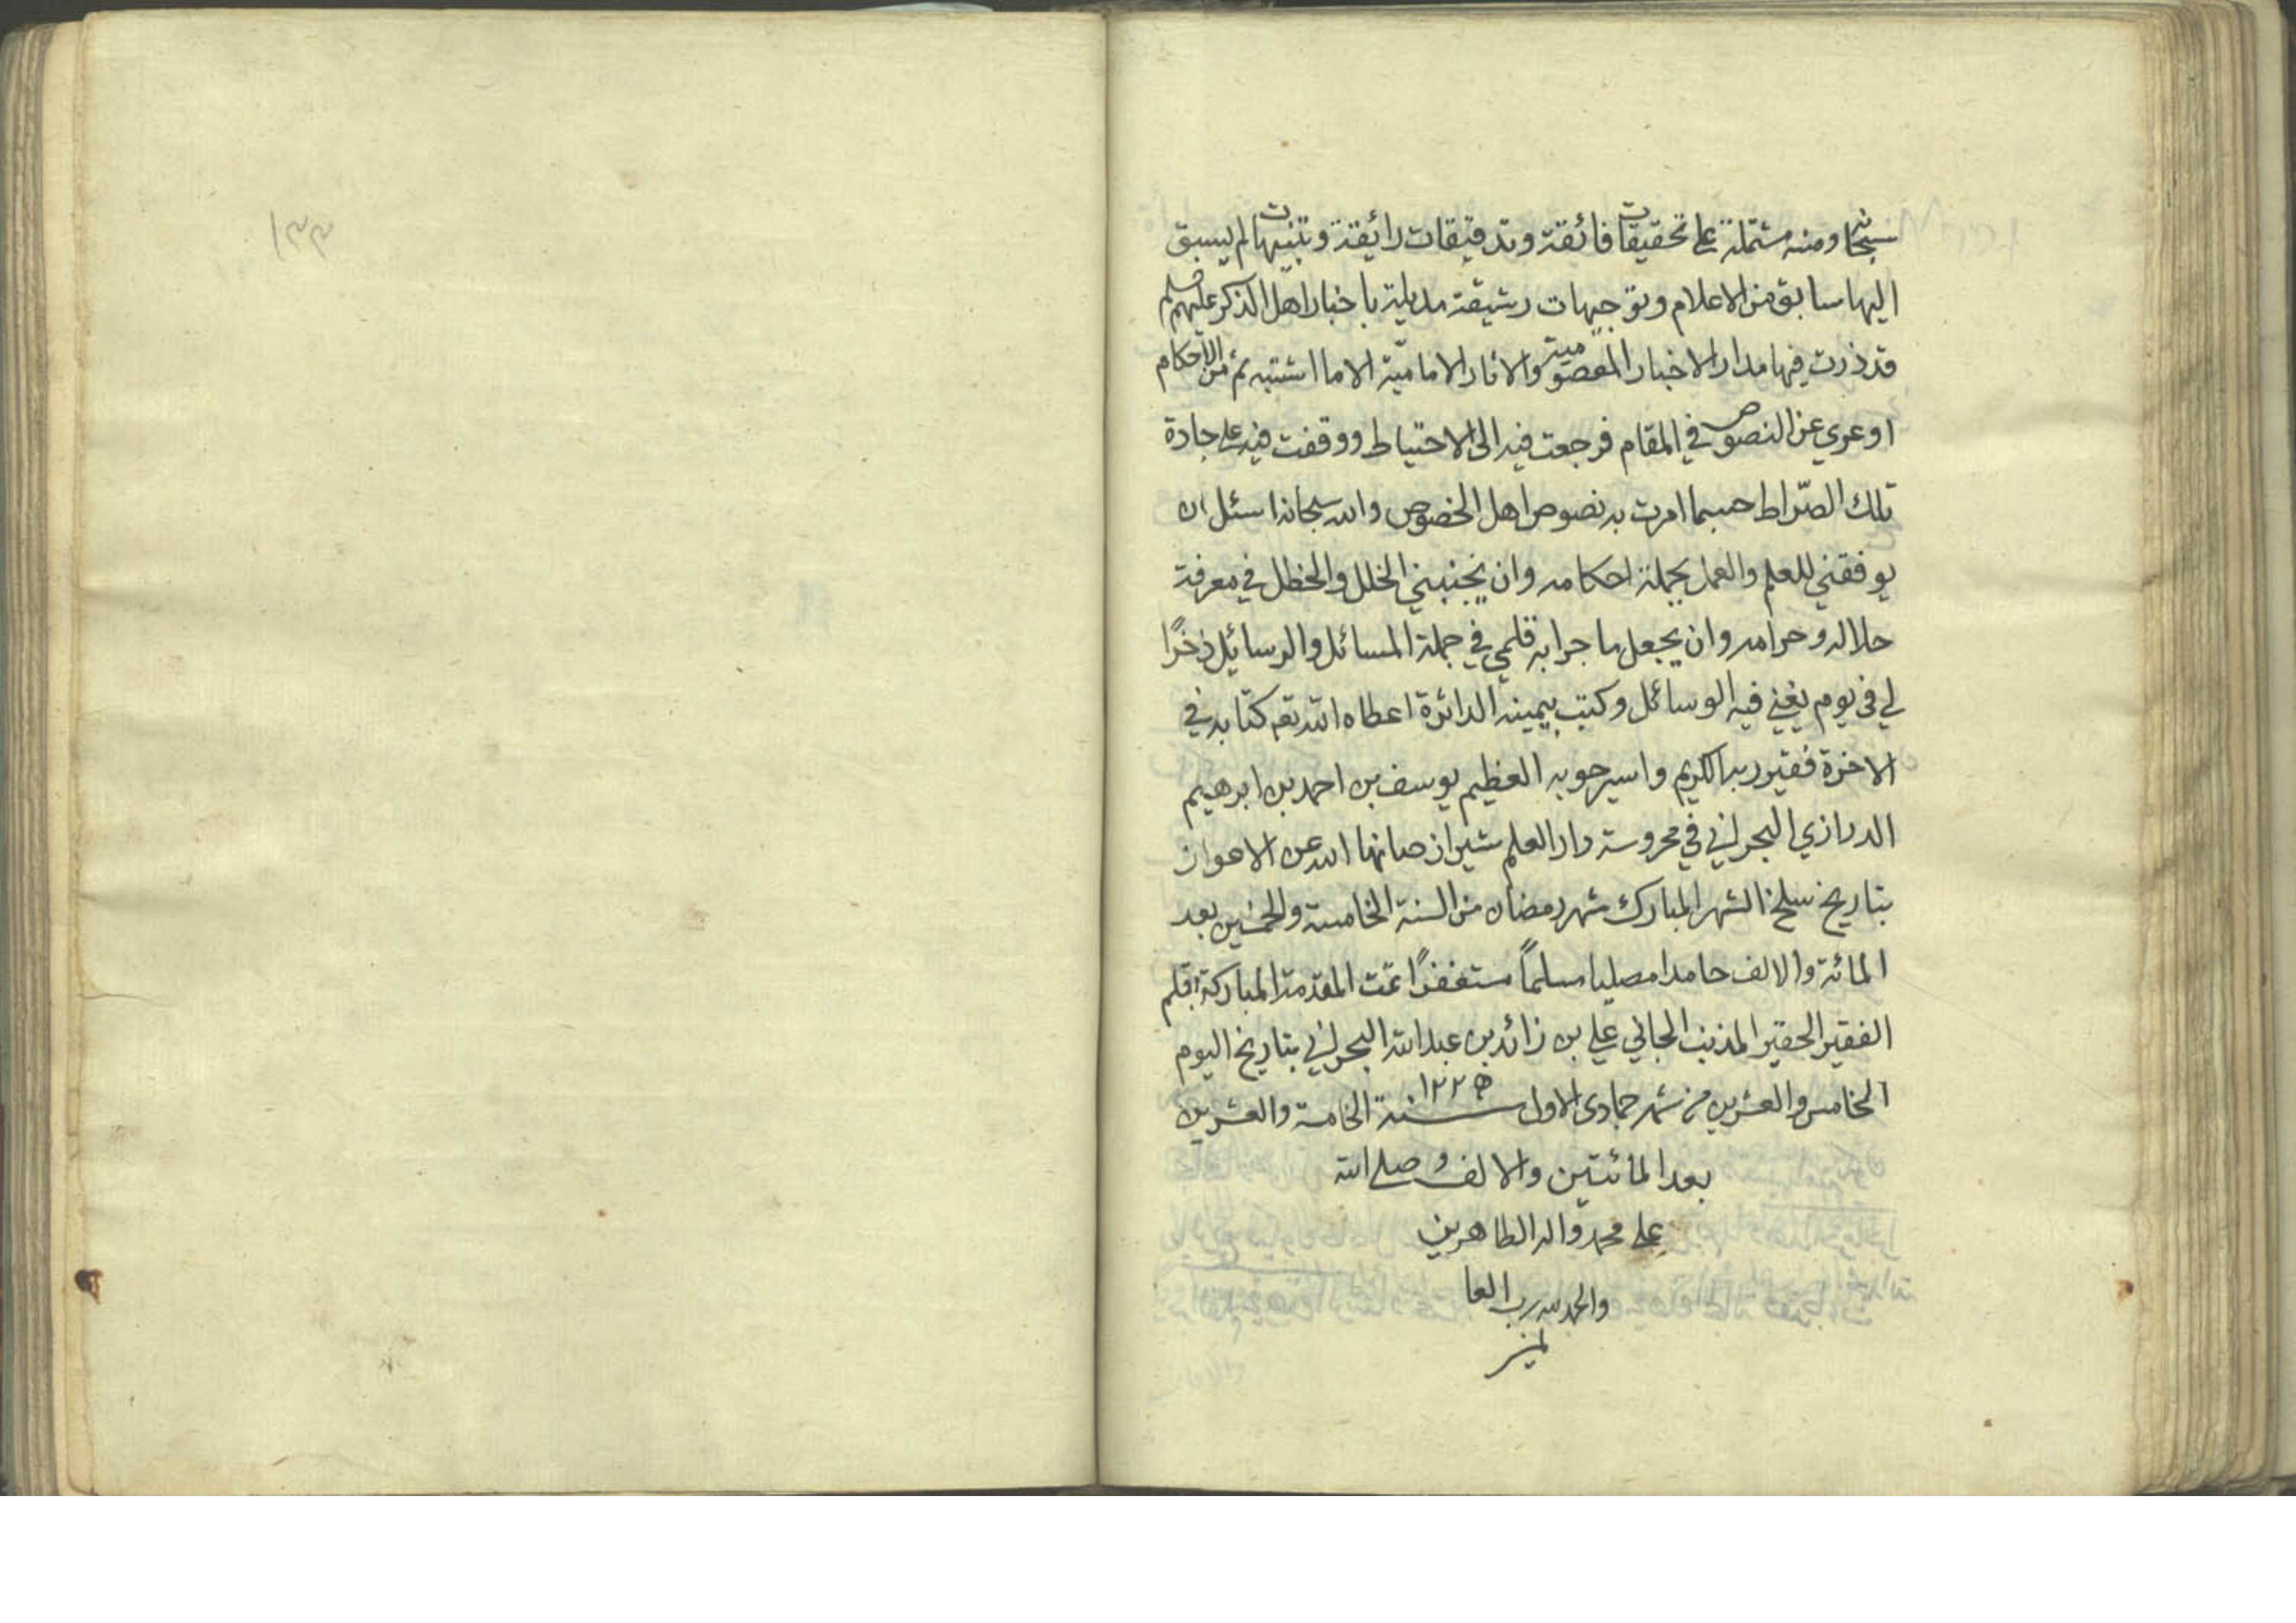 سبحانه ومنه مشتملة على تحقيقات فائقة وتدقيقات رائقة وتنبيهات لم يسبق
اليها سابق من الاعلام وتوجيهات رشيقة مذيلة باخبار اهل الذكر عليهم السلم
قد ذرت فيها مدار الاخبار المعصومية والاثار الاماميّة الا ما اشتبه ثم من الاحكام
او عري عن النصوص في المقام فرجعت فيه الى الاحتياط ووقفت فيه على جادة
تلك الصّراط حسبما امرت به نصوص اهل الخصوص والله سبحانه اسئل ان
يوفقني للعلم والعمل بجملة احكامه وان يجنبني الخلل والخطل في معرفة
حلاله وحرامه وان يجعل ما جرا به قلمي في جملة المسائل والرسائل ذخرًا
لي في يوم يغني فيه الوسائل وكتب بيمينه الدائرة اعطاه الله تعم كتابه في
الاخرة فقير ربه الكريم واسير حوبه العظيم يوسف بن احمد بن ابرهيم
الدرازي البحراني في محروسة دار العلم شيراز صانها الله عن الاعواز
بتاريخ سلخ الشهر المبارك شهر رمضان من السنة الخامسة والخمسين بعد
المائة والالف حامدا مصليا مسلماً مستغفرًا تمت المقدمة المباركة بقلم
الفقير الحقير المذنب الجاني علي بن زائد بن عبد الله البحراني بتاريخ اليوم
الخامس والعشرين من شهر جمادى الاول سنة ١٢٢٥ الخامسة والعشرين
بعد المائتين والالف وصلى الله
على محمد واله الطاهرين
والحمد لله رب العا
لمين
١٣٣